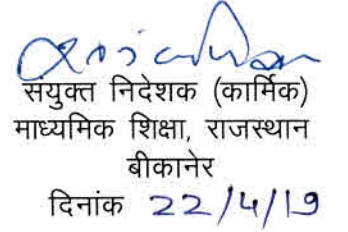 संयुक्त निदेशक (कार्मिक)
माध्यमिक शिक्षा, राजस्थान
बीकानेर
दिनांक 22/4/19